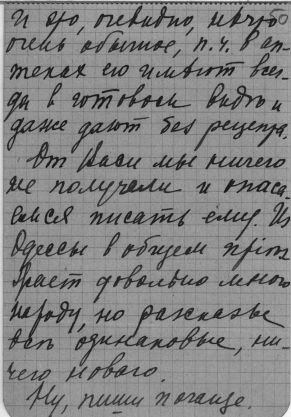 И это, очевидно, нечто
очень обычное, п.ч. в ап-
теках его имеют всег-
да в готовом виде и
даже дают без рецепта.
От Васи мы ничего
не получали и опаса-
емся писать ему. Из
Одессы в общем приез
жает довольно много
народу, но рассказы
все одинаковые, ни-
чего нового.
Ну, пиши почаще.